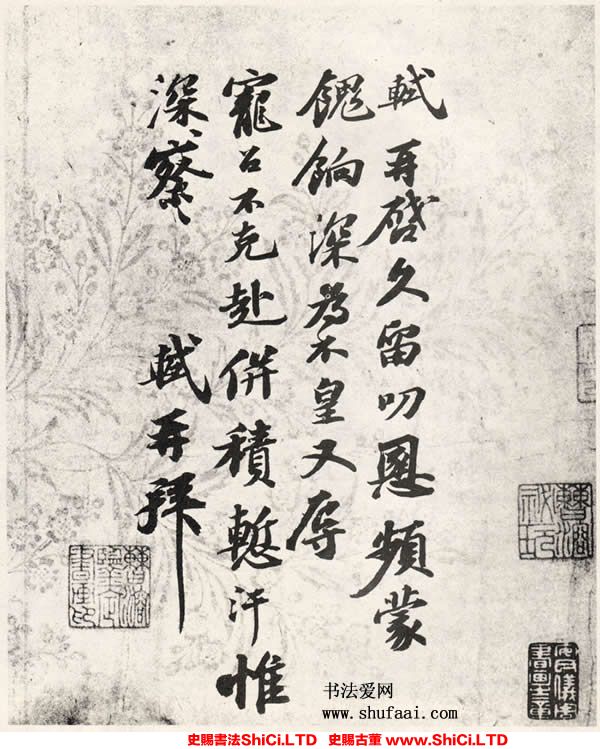 軾再啓久留叨恩頻蒙
餽餉深為不皇又辱
寵召不克赴併積慙汗惟
深察
軾再拜
曹溶
書法爱网
www.shufaai.com
史賜書法ShiCi.LTD 史賜古董 www.ShiCi.LTD